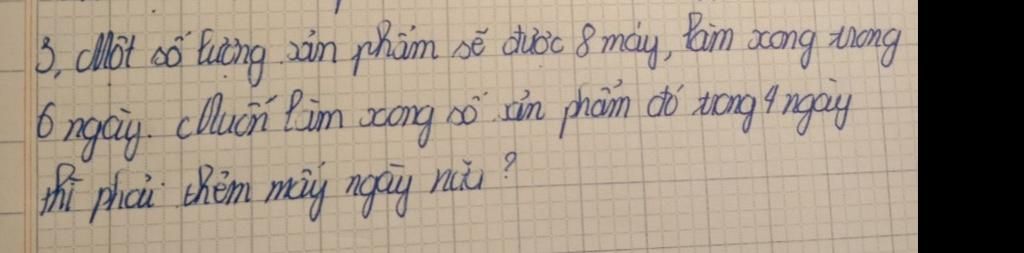 3, Một số lượng sản phẩm sẽ được 8 máy, làm xong trong
6 ngày. Muốn làm xong số sản phẩm đó trong 4 ngày
thì phải thêm mấy ngày nữa?